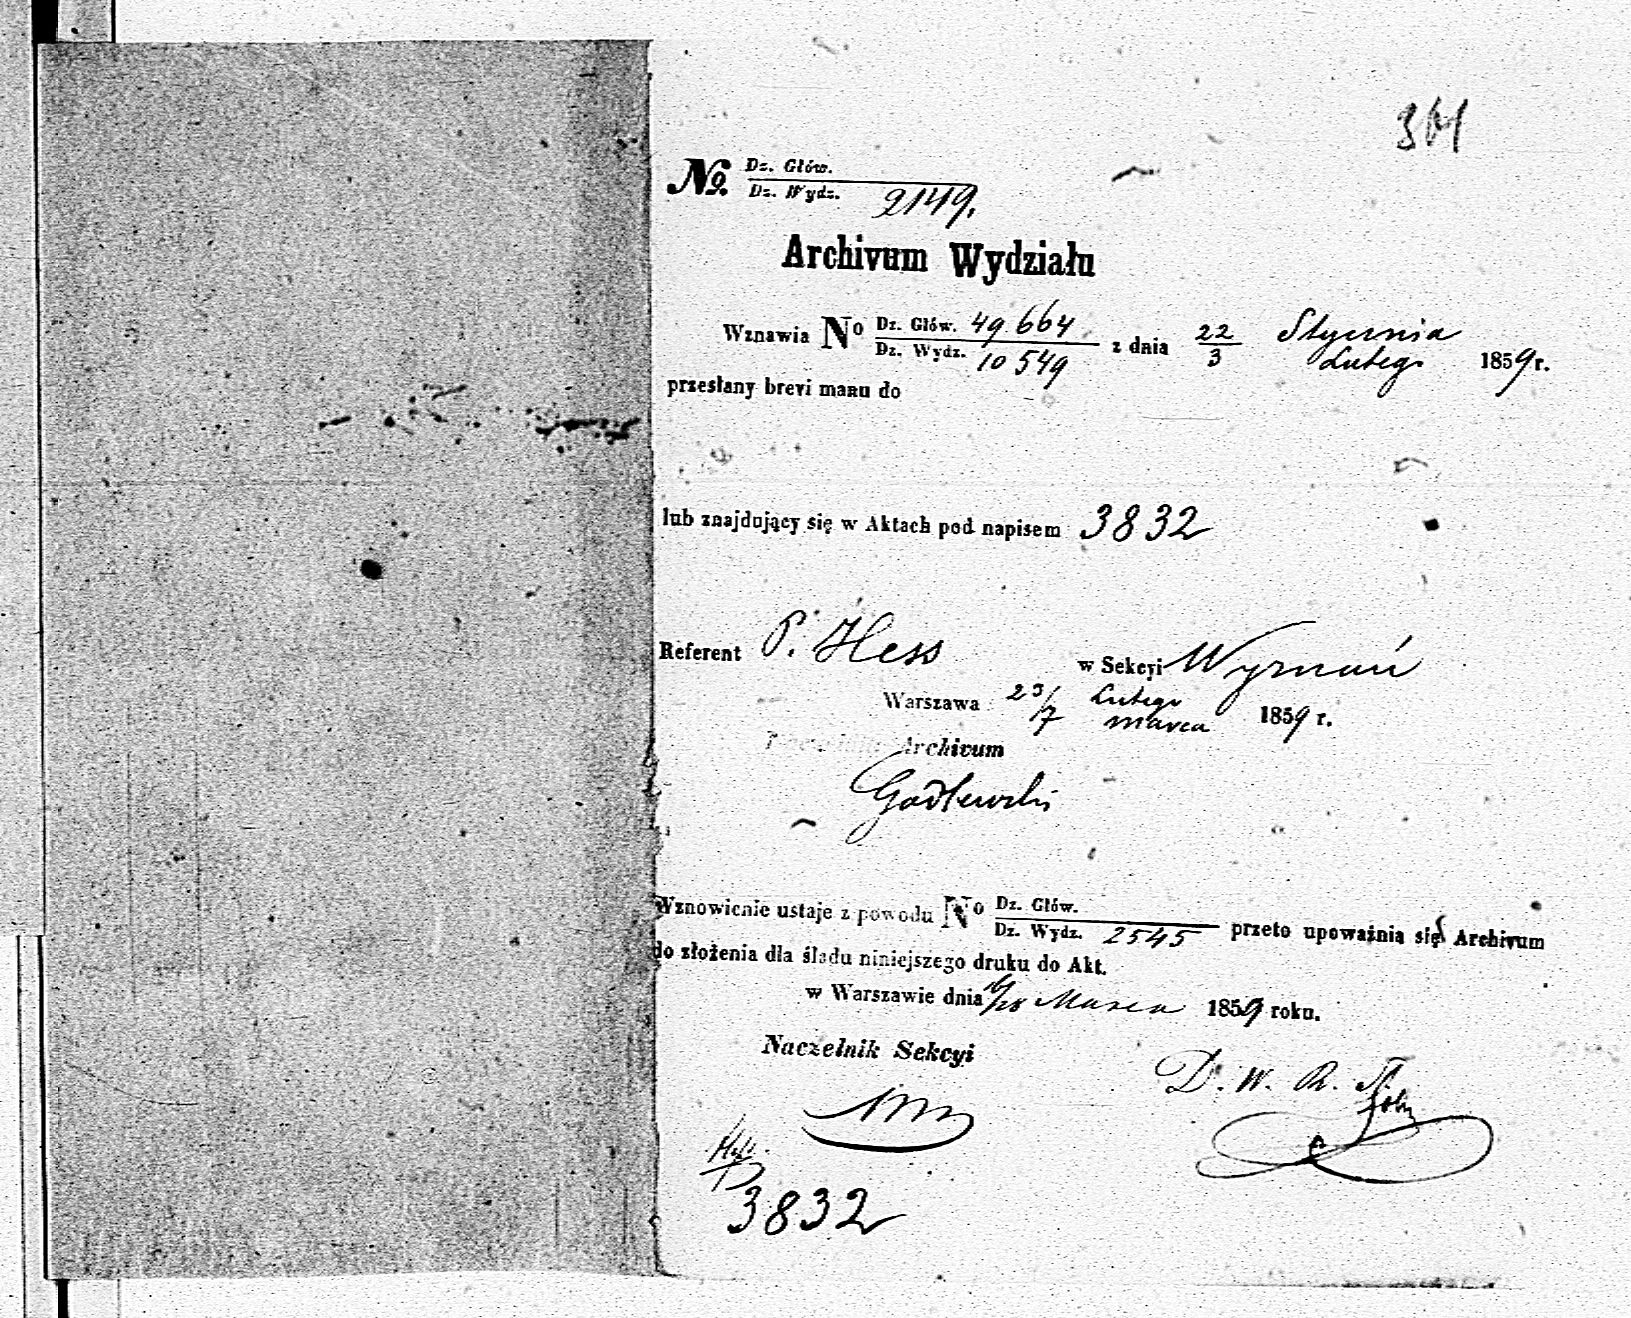 Nº Dz. Głów.
Dz. Wydz. 2149.
Archivum Wydziału
Wznawia Nº Dz. Głów. 49 664 z dnia 22 Stycznia 1859 r.
Dz. Wydz. 10 549 3 Lutego
przesłany brevi manu do
lub znajdujący się w Aktach pod napisem 3832
Referent P. Hess w Sekcyi Wyznań
Warszawa 23/7 Lutego Marca 1859 r.
Archivum
Godlewski
Wznowienie ustaje z powodu Nº Dz. Głów.
Dz. Wydz. 2545 przeto upoważnia się Archivum
do złożenia dla śladu niniejszego druku do Akt.
w Warszawie dnia 16/28 Marca 1859 roku.
Naczelnik Sekcyi
D. W. R. St.
3832